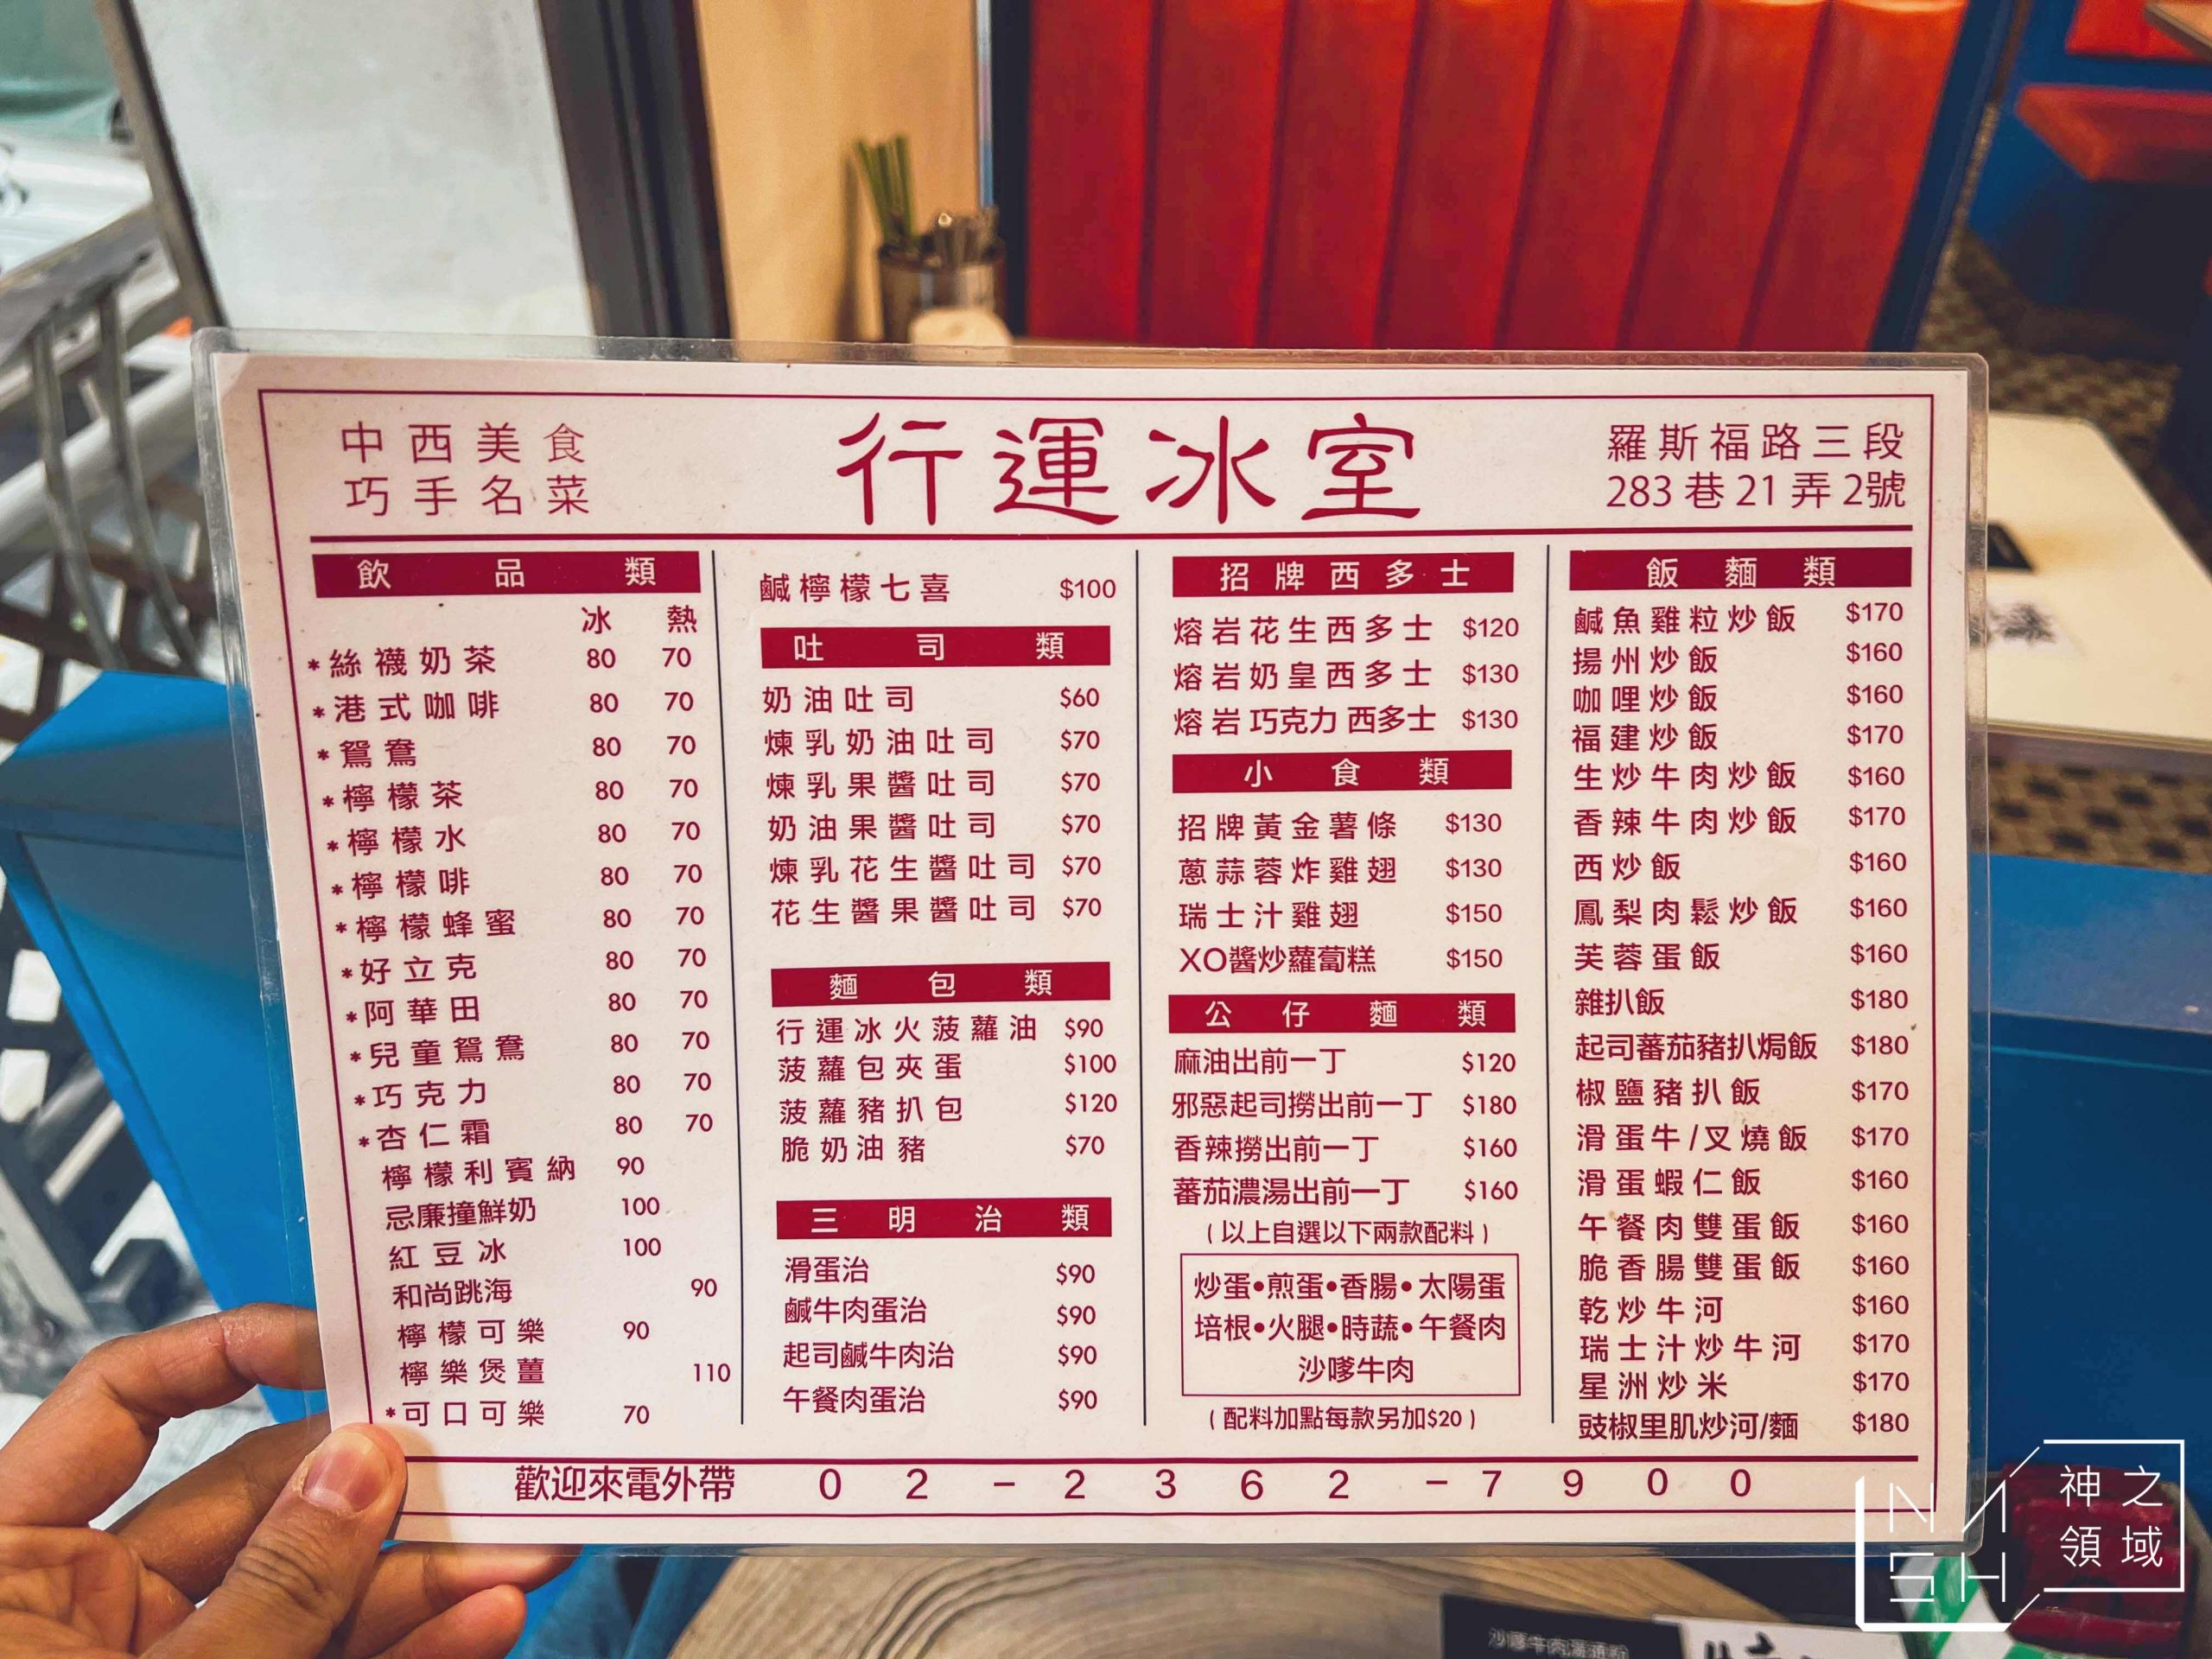 中西美食
巧手名菜
行運冰室
羅斯福路三段
283巷21弄2號
飲品類
冰 熱
*絲襪奶茶 80 70
*港式咖啡 80 70
*鴛鴦 80 70
*檸檬茶 80 70
*檸檬水 80 70
*檸檬啡 80 70
*檸檬蜂蜜 80 70
*好立克 80 70
*阿華田 80 70
*兒童鴛鴦 80 70
*巧克力 80 70
*杏仁霜 80 70
檸檬利賓納 90
忌廉撞鮮奶 100
紅豆冰 100
和尚跳海 90
檸檬可樂 90
檸樂煲薑 110
*可口可樂 70
鹹檸檬七喜 $100
吐司類
奶油吐司 $60
煉乳奶油吐司 $70
煉乳果醬吐司 $70
奶油果醬吐司 $70
煉乳花生醬吐司 $70
花生醬果醬吐司 $70
麵包類
行運冰火菠蘿油 $90
菠蘿包夾蛋 $100
菠蘿豬扒包 $120
脆奶油豬 $70
三明治類
滑蛋治 $90
鹹牛肉蛋治 $90
起司鹹牛肉治 $90
午餐肉蛋治 $90
招牌西多士
熔岩花生西多士 $120
熔岩奶皇西多士 $130
熔岩巧克力西多士 $130
小食類
招牌黃金薯條 $130
蔥蒜蓉炸雞翅 $130
瑞士汁雞翅 $150
XO醬炒蘿蔔糕 $150
公仔麵類
麻油出前一丁 $120
邪惡起司撈出前一丁 $180
香辣撈出前一丁 $160
蕃茄濃湯出前一丁 $160
(以上自選以下兩款配料)
炒蛋•煎蛋•香腸•太陽蛋
培根•火腿•時蔬•午餐肉
沙嗲牛肉
(配料加點每款另加$20)
飯麵類
鹹魚雞粒炒飯 $170
揚州炒飯 $160
咖哩炒飯 $160
福建炒飯 $170
生炒牛肉炒飯 $160
香辣牛肉炒飯 $170
西炒飯 $160
鳳梨肉鬆炒飯 $160
芙蓉蛋飯 $160
雜扒飯 $180
起司蕃茄豬扒焗飯 $180
椒鹽豬扒飯 $170
滑蛋牛/叉燒飯 $170
滑蛋蝦仁飯 $160
午餐肉雙蛋飯 $160
脆香腸雙蛋飯 $160
乾炒牛河 $160
瑞士汁炒牛河 $170
星洲炒米 $170
豉椒里肌炒河/麵 $180
歡迎來電外帶 02-2362-7900
神之
領域
NASH